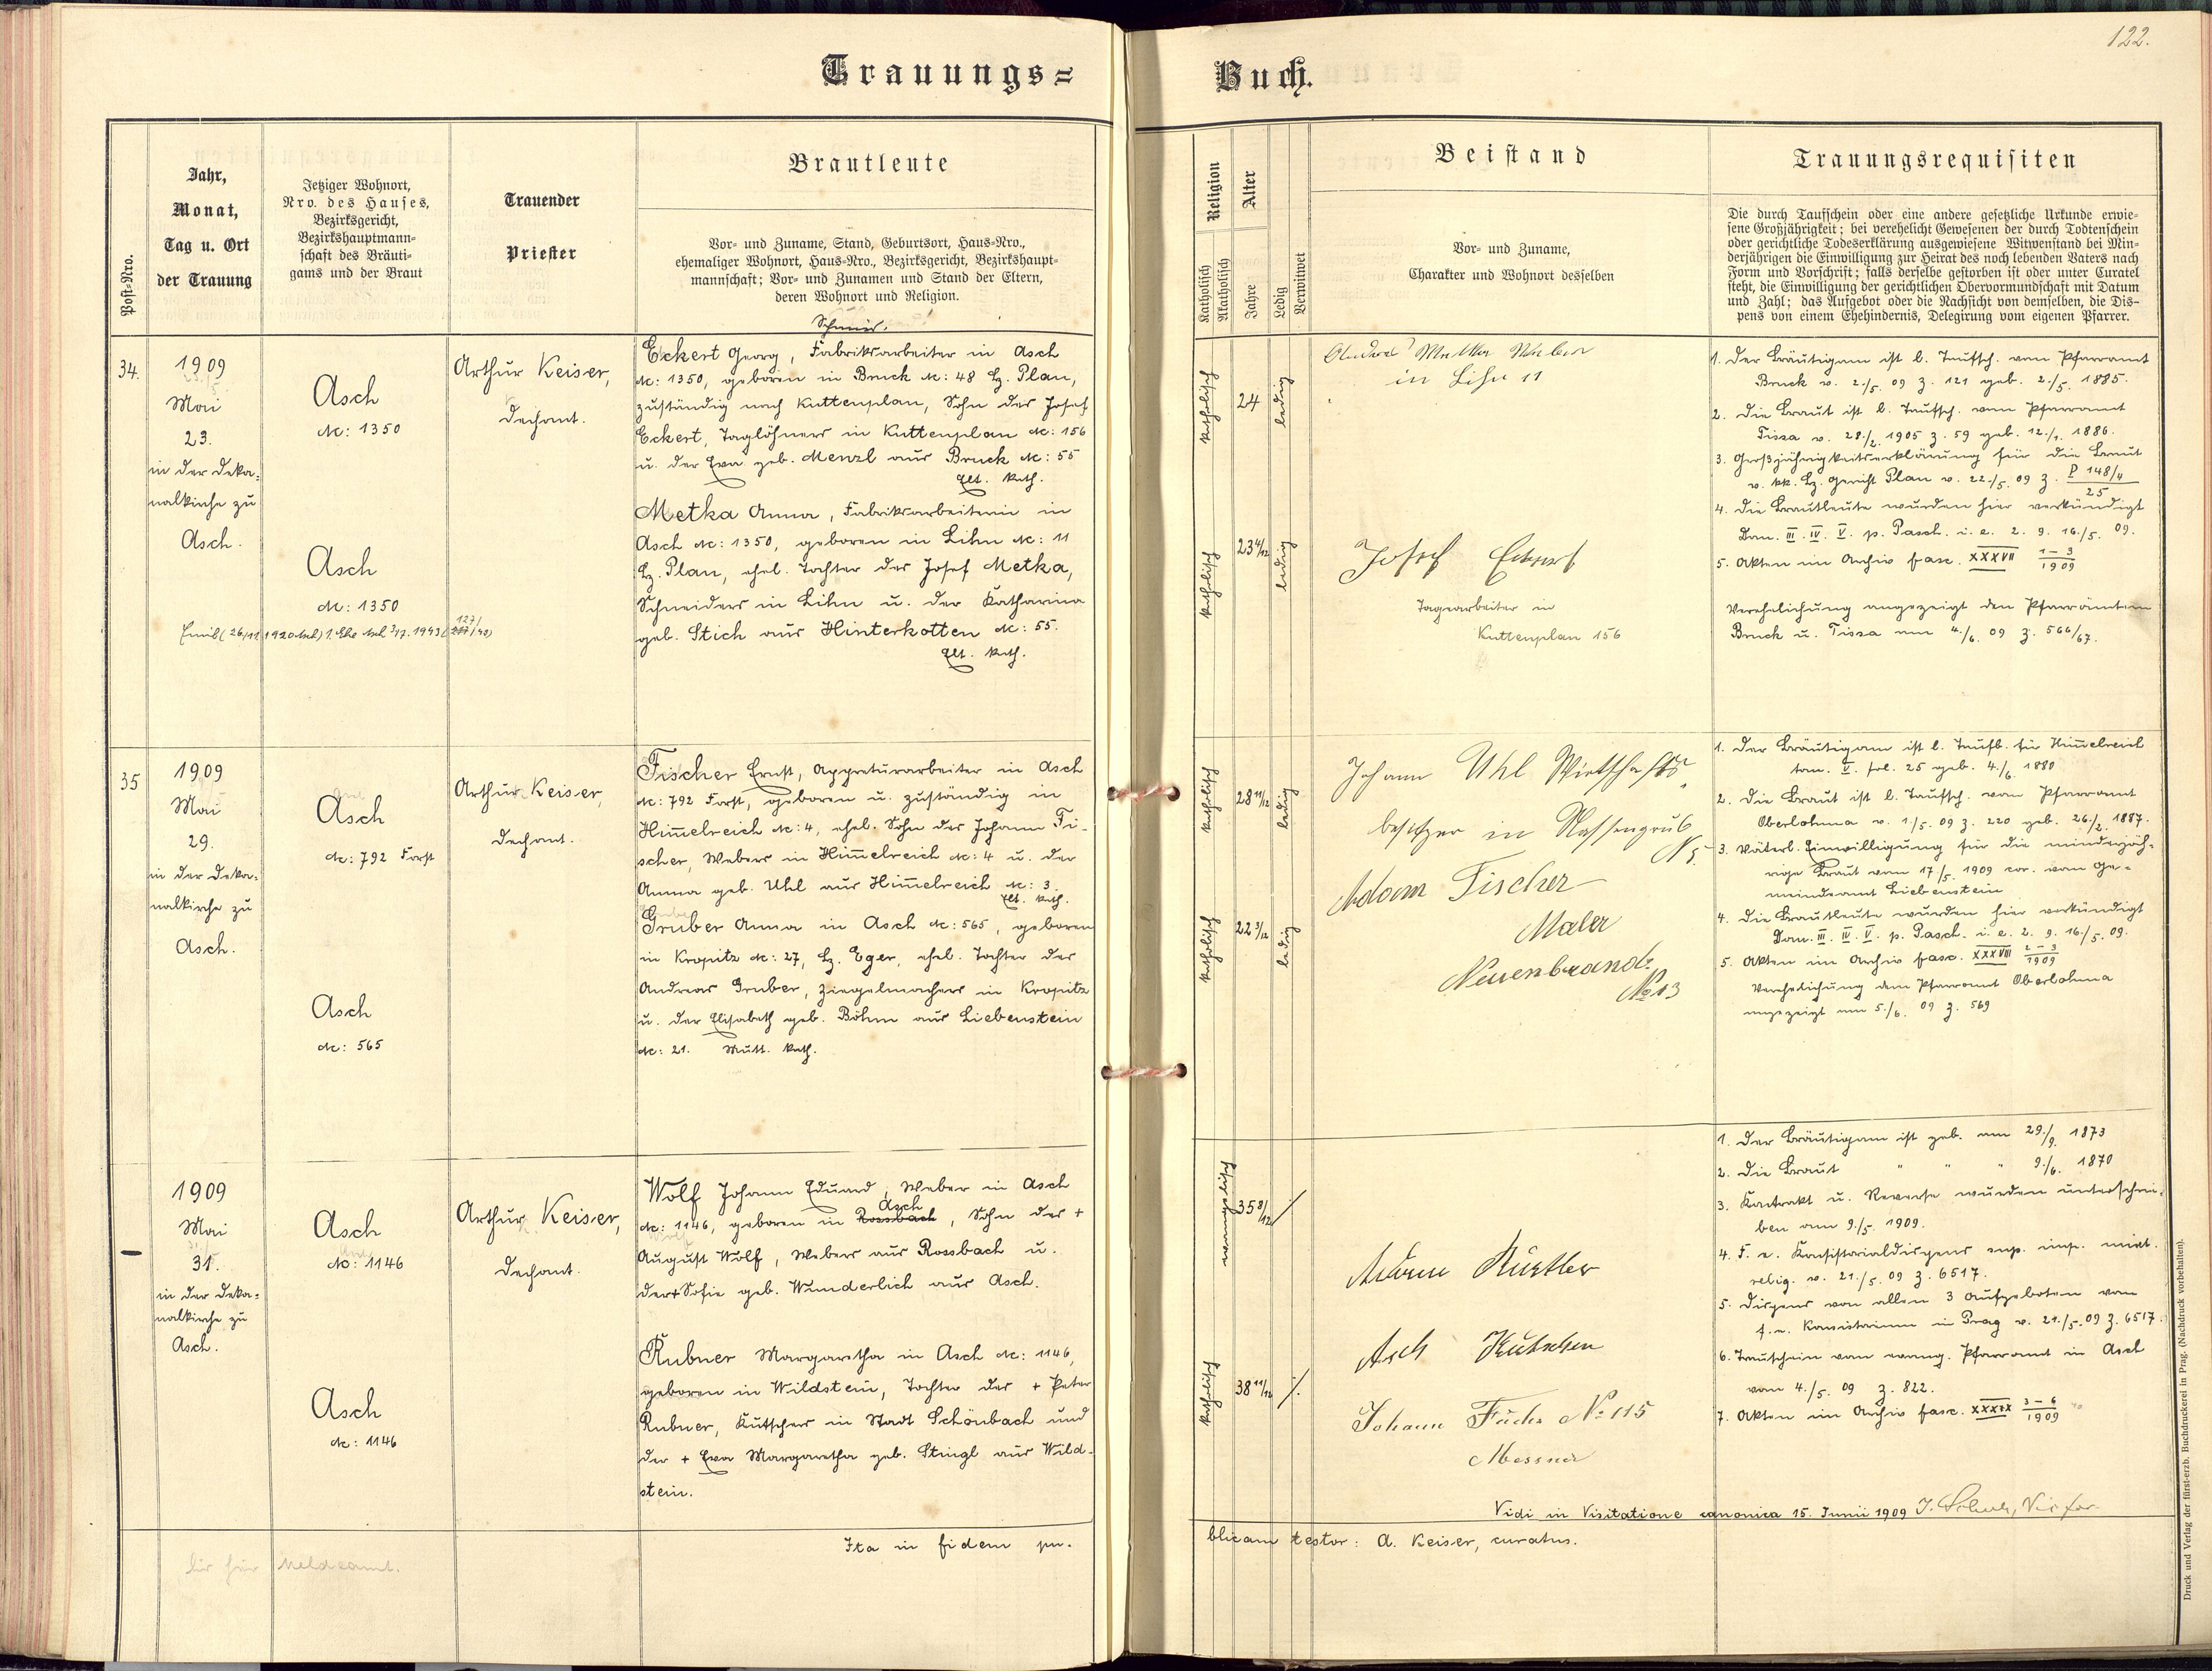 122.
Trauungs=
Buch.
Post-Nro.
Jahr,
Monat,
Tag u. Ort
der Trauung
Jetziger Wohnort,
Nro. des Hauses,
Bezirksgericht,
Bezirkshauptmann=
schaft des Bräuti=
gams und der Braut
Trauender
Priester
Brautleute
Vor- und Zuname, Stand, Geburtsort, Haus-Nro.,
ehemaliger Wohnort, Haus-Nro., Bezirksgericht, Bezirkshaupt=
mannschaft; Vor- und Zunamen und Stand der Eltern,
deren Wohnort und Religion.
Religion
Katholisch
Akatholisch
Alter
Jahre
Ledig
Verwitwet
Beistand
Vor- und Zuname,
Charakter und Wohnort desselben
Trauungsrequisiten
Die durch Taufschein oder eine andere gesetzliche Urkunde erwie=
sene Großjährigkeit; bei verehelicht Gewesenen der durch Todtenschein
oder gerichtliche Todeserklärung ausgewiesene Witwenstand bei Min=
derjährigen die Einwilligung zur Heirat des noch lebenden Vaters nach
Form und Vorschrift; falls derselbe gestorben ist oder unter Curatel
steht, die Einwilligung der gerichtlichen Obervormundschaft mit Datum
und Zahl; das Aufgebot oder die Nachsicht von demselben, die Dis=
pens von einem Ehehindernis, Delegirung vom eigenen Pfarrer.
34.
1909
Mai
23.
in der Deka=
nalkirche zu
Asch.
Asch
Nc: 1350
Asch
Nc: 1350
Arthur Keiser,
Dechant.
Eckert Georg, Fabriksarbeiter in Asch
Nc: 1350, geboren in Bruck Nc: 48 Bz. Plan,
zuständig nach Kuttenplan, Sohn des Josef
Eckert, Taglöhners in Kuttenplan Nc: 156
u. der Eva geb. Menzl aus Bruck Nc: 55
Elt. kath.
Metka Anna, Fabriksarbeiterin in
Asch Nc: 1350, geboren in Lihn Nc: 11
Bz. Plan, ehel. Tochter des Josef Metka,
Schneiders in Lihn u. der Katharina
geb. Stich aus Hinterkotten Nc: 55.
Elt. kath.
katholisch
24
ledig
katholisch
23 4/12
ledig
in Lihn 11
Josef Eckert
Tagearbeiter in
Kuttenplan 156
1. Der Bräutigam ist l. Taufsch. vom Pfarramt
Bruck v. 2./5. 09 Z. 121 geb. 2./5. 1885.
2. Die Braut ist l. Taufsch. vom Pfarramt
Tissa v. 28./2. 1905 Z. 59 geb. 12./1. 1886.
3. Großjährigkeitserklärung für die Braut
v. kk. Bz. Gericht Plan v. 22./5. 09 Z. P 148/4
25
4. Die Brautleute wurden hier verkündigt
Dom. III. IV. V. p. Pasch. i. e. 2. 9. 16./5. 09.
5. Akten im Archiv fasc. XXXVII 1-3
1909
Verehelichung angezeigt den Pfarrämtern
Bruck u. Tissa am 4./6. 09 Z. 566/67.
35
1909
Mai
29.
in der Deka=
nalkirche zu
Asch.
Asch
Nc: 792 Forst
Asch
Nc: 565
Arthur Keiser,
Dechant.
Fischer Ernst, Appreturarbeiter in Asch
Nc: 792 Forst, geboren u. zuständig in
Himmelreich Nc: 4, ehel. Sohn des Johann Fi-
scher, Webers in Himmelreich Nc: 4 u. der
Anna geb. Uhl aus Himmelreich Nc: 3.
Elt. kath.
Gruber Anna in Asch Nc: 565, geboren
in Kropitz Nc: 27, Bz. Eger, ehel. Tochter des
Andreas Gruber, Ziegelmachers in Kropitz
u. der Elisabeth geb. Böhm aus Liebenstein
Nc: 21. Mutt. kath.
katholisch
28 11/12
ledig
katholisch
22 3/12
ledig
Johann Uhl Wirtschafts
besitzer in Nassengrub
N 5
Adam Fischer
Maler
Neuenbrand
No 13
1. Der Bräutigam ist l. Taufb. für Himmelreich
tom. V. fol. 25 geb. 4./6. 1880
2. Die Braut ist l. Taufsch. vom Pfarramt
Oberlohma v. 1./5. 09 Z. 220 geb. 26./2. 1887.
3. Väterl. Einwilligung für die minderjäh=
rige Braut vom 17/5. 1909 cor. vom Ge=
meindeamt Liebenstein
4. Die Brautleute wurden hier verkündigt
Dom. III. IV. V. p. Pasch. i. e. 2. 9. 16./5. 09.
5. Akten im Archiv fasc. XXXVIII 2-3
1909
Verehelichung dem Pfarramt Oberlohma
angezeigt am 5./6. 09 Z. 569
1909
Mai
31.
in der Deka=
nalkirche zu
Asch.
Asch
No: 1146
Asch
Nc: 1146
Arthur Keiser,
Dechant.
Wolf Johann Eduard, Weber in Asch
Asch
Nc: 1146, geboren in Rossbach, Sohn des +
August Wolf, Webers aus Rossbach u.
der + Sofie geb. Wunderlich aus Asch.
Rubner Margaretha in Asch Nc: 1146,
geboren in Wildstein, Tochter des + Peter
Rubner, Kutschers in Stadt Schönbach und
der + Eva Margaretha geb. Stingl aus Wild-
stein.
evangelisch
35 8/12
katholisch
38 11/12
Asch Kutscher
Johann Fuchs No 115
Messner
1. Der Bräutigam ist geb. am 29./9. 1873
2. Die Braut " " " 9./6. 1870
3. Kontrakt u. Reverse wurden unterschrie=
ben am 9./5. 1909.
4. F. e. Konsistorialdispens sup. imp. mixt.
relig. v. 21./5. 09 Z. 6517.
5. Dispens von allen 3 Aufgeboten vom
f. e. Konsistorium in Prag v. 21./5. 09 Z. 6517.
6. Taufschein vom evang. Pfarramt in Asch
vom 4./5. 09 Z. 822.
7. Akten im Archiv fasc. XXXIX 3-6
1909
Vidi in Visitatione canonica 15. Junii 1909
Ita in fidem pu-
blicam testor: A. Keiser, curatus.
bis hier Meldeamt.
Druck und Verlag der fürst-erzb. Buchdruckerei in Prag. (Nachdruck vorbehalten).